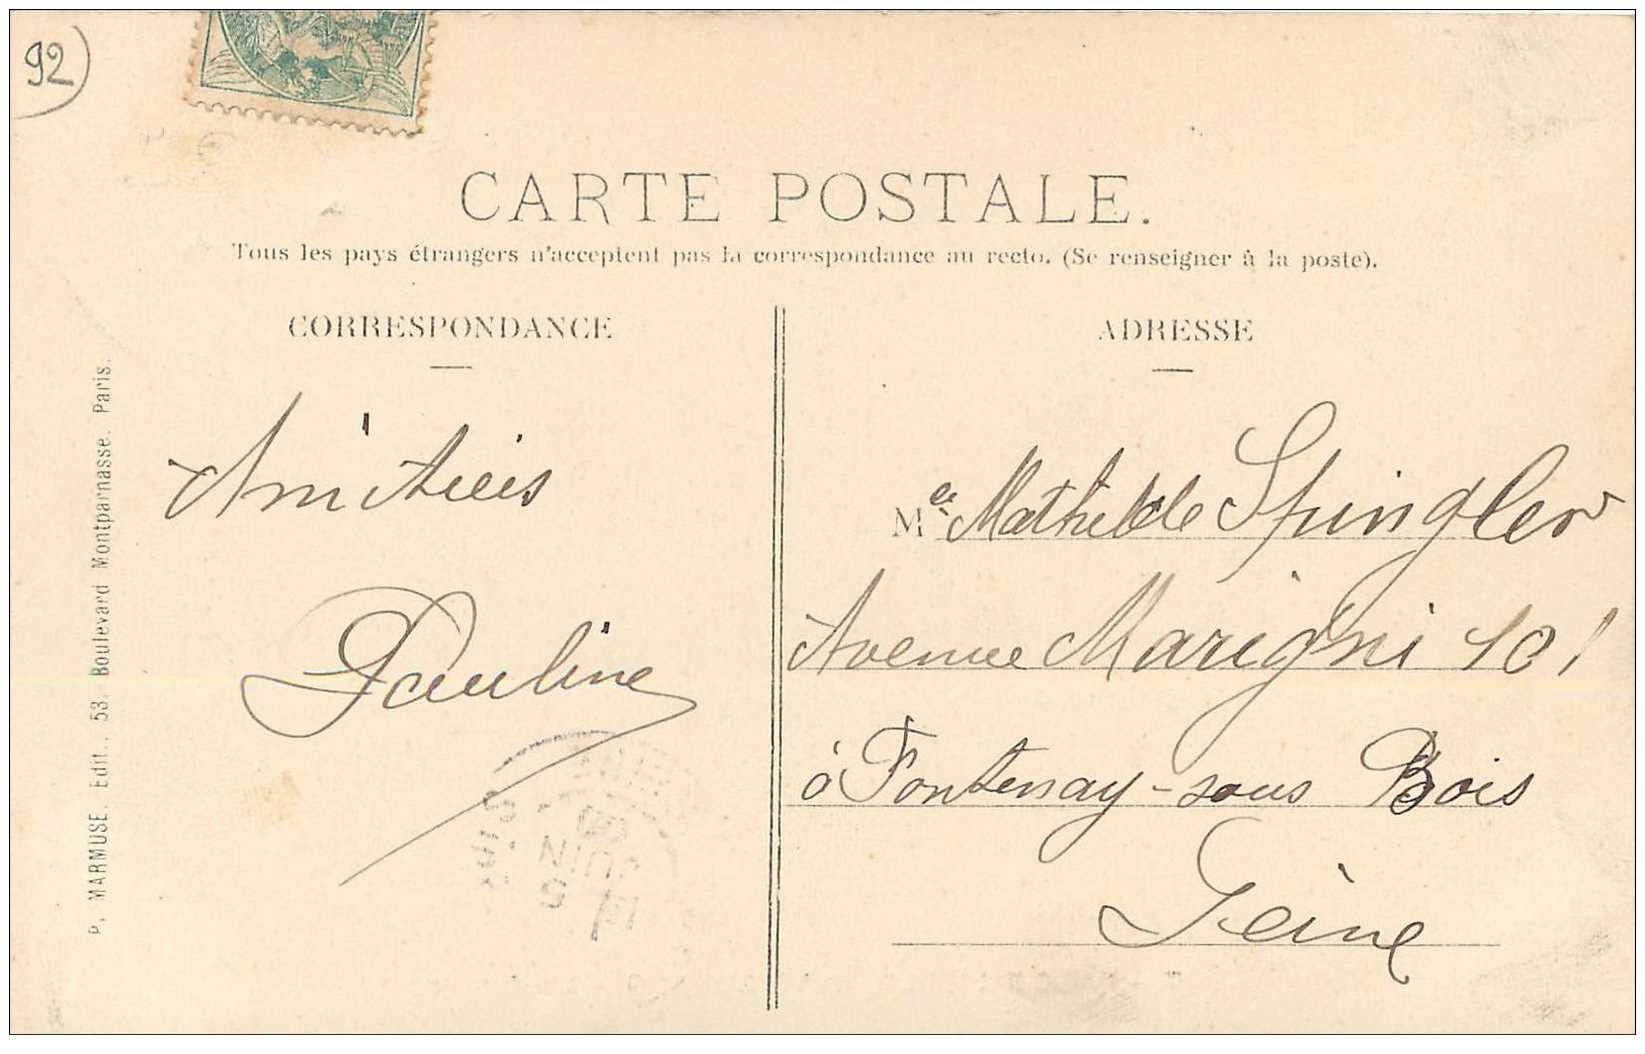 92
CARTE POSTALE.
Tous les pays étrangers n'acceptent pas la correspondance au recto. (Se renseigner à la poste).
CORRESPONDANCE
Amitiés
Pauline
JUIN
P. MARMUSE. Edit.. 53. Boulevard Montparnasse. Paris.
ADRESSE
Melle Mathilde Spingler
Avenue Marigni 101
à Fontenay-sous Bois
Seine